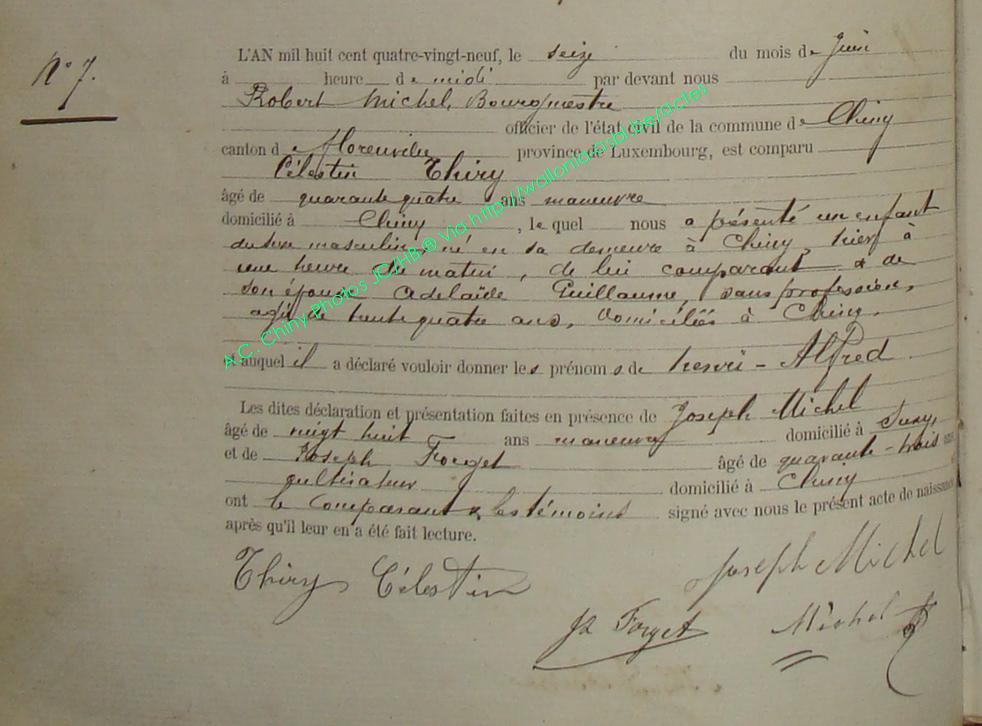 N° 7.
L'AN mil huit cent quatre-vingt-neuf, le seize du mois de Juin
à heure de midi par devant nous
Robert Michel, Bourgmestre
officier de l'état civil de la commune de Chiny
canton de Florenville province de Luxembourg, est comparu
Célestin Thiry
âgé de quarante quatre ans manœuvre
domicilié à Chiny, le quel nous a présenté un enfant
du sexe masculin, né en sa demeure à Chiny, hier à
une heure du matin, de lui comparant & de
son épouse Adelaïde Guillaume, sans profession,
agée de trente quatre ans, domiciliés à Chiny.
et auquel il a déclaré vouloir donner les prénoms de henri - Alfred
Les dites déclaration et présentation faites en présence de Joseph Michel
âgé de vingt huit ans manœuvre domicilié à Suxy,
et de Joseph Forget âgé de quarante-trois ans
cultivateur domicilié à Chiny
ont le comparant & les témoins signé avec nous le présent acte de naissance
après qu'il leur en a été fait lecture.
Thiry Célestin Joseph Michel
Js Forget Michel R
A.C. Chiny Photos JC/HB ® Via http://wallonia.asbl.be/actes